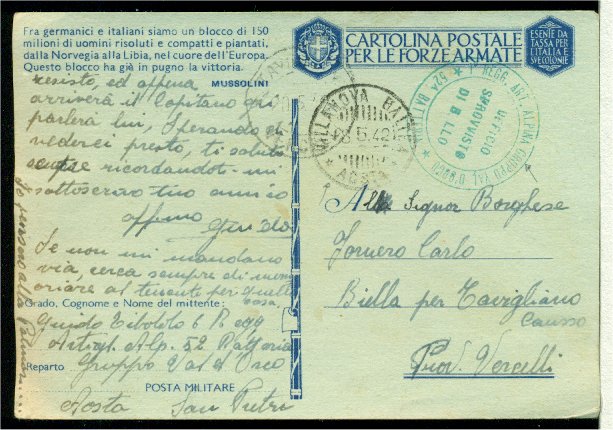 Fra germanici e italiani siamo un blocco di 150
milioni di uomini risoluti e compatti e piantati,
dalla Norvegia alla Libia, nel cuore dell'Europa.
Questo blocco ha già in pugno la vittoria.
MUSSOLINI
CARTOLINA POSTALE
PER LE FORZE ARMATE
ESENTE DA
TASSA PER
L'ITALIA E
SVE COLONIE
resisto, ed appena
arriverà il Capitano gli
parlerà lui, Sperando di
vederci presto, ti saluto
ricordandoti
sottoscrivo tuo amico
Guido
Se non mi mandano
via, cerca sempre di
oriare al tenente per quella
cosa,
Grado, Cognome e Nome del mittente:
Guido
52 Batteria
Reparto
Gruppo Val d'Orco
POSTA MILITARE
Aosta
VILLANOVA BALTEA
5.42
AOSTA
UFFICIO
SPROVVISTO
DI BOLLO
52a BATTERIA
Alla Signor Borghese
Fornero Carlo
Biella per Tavigliano
Prov. Vercelli